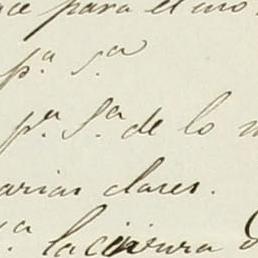 para el uso
p.ª s.ª
p.ª S.ª de lo
arias clases.
la cirura